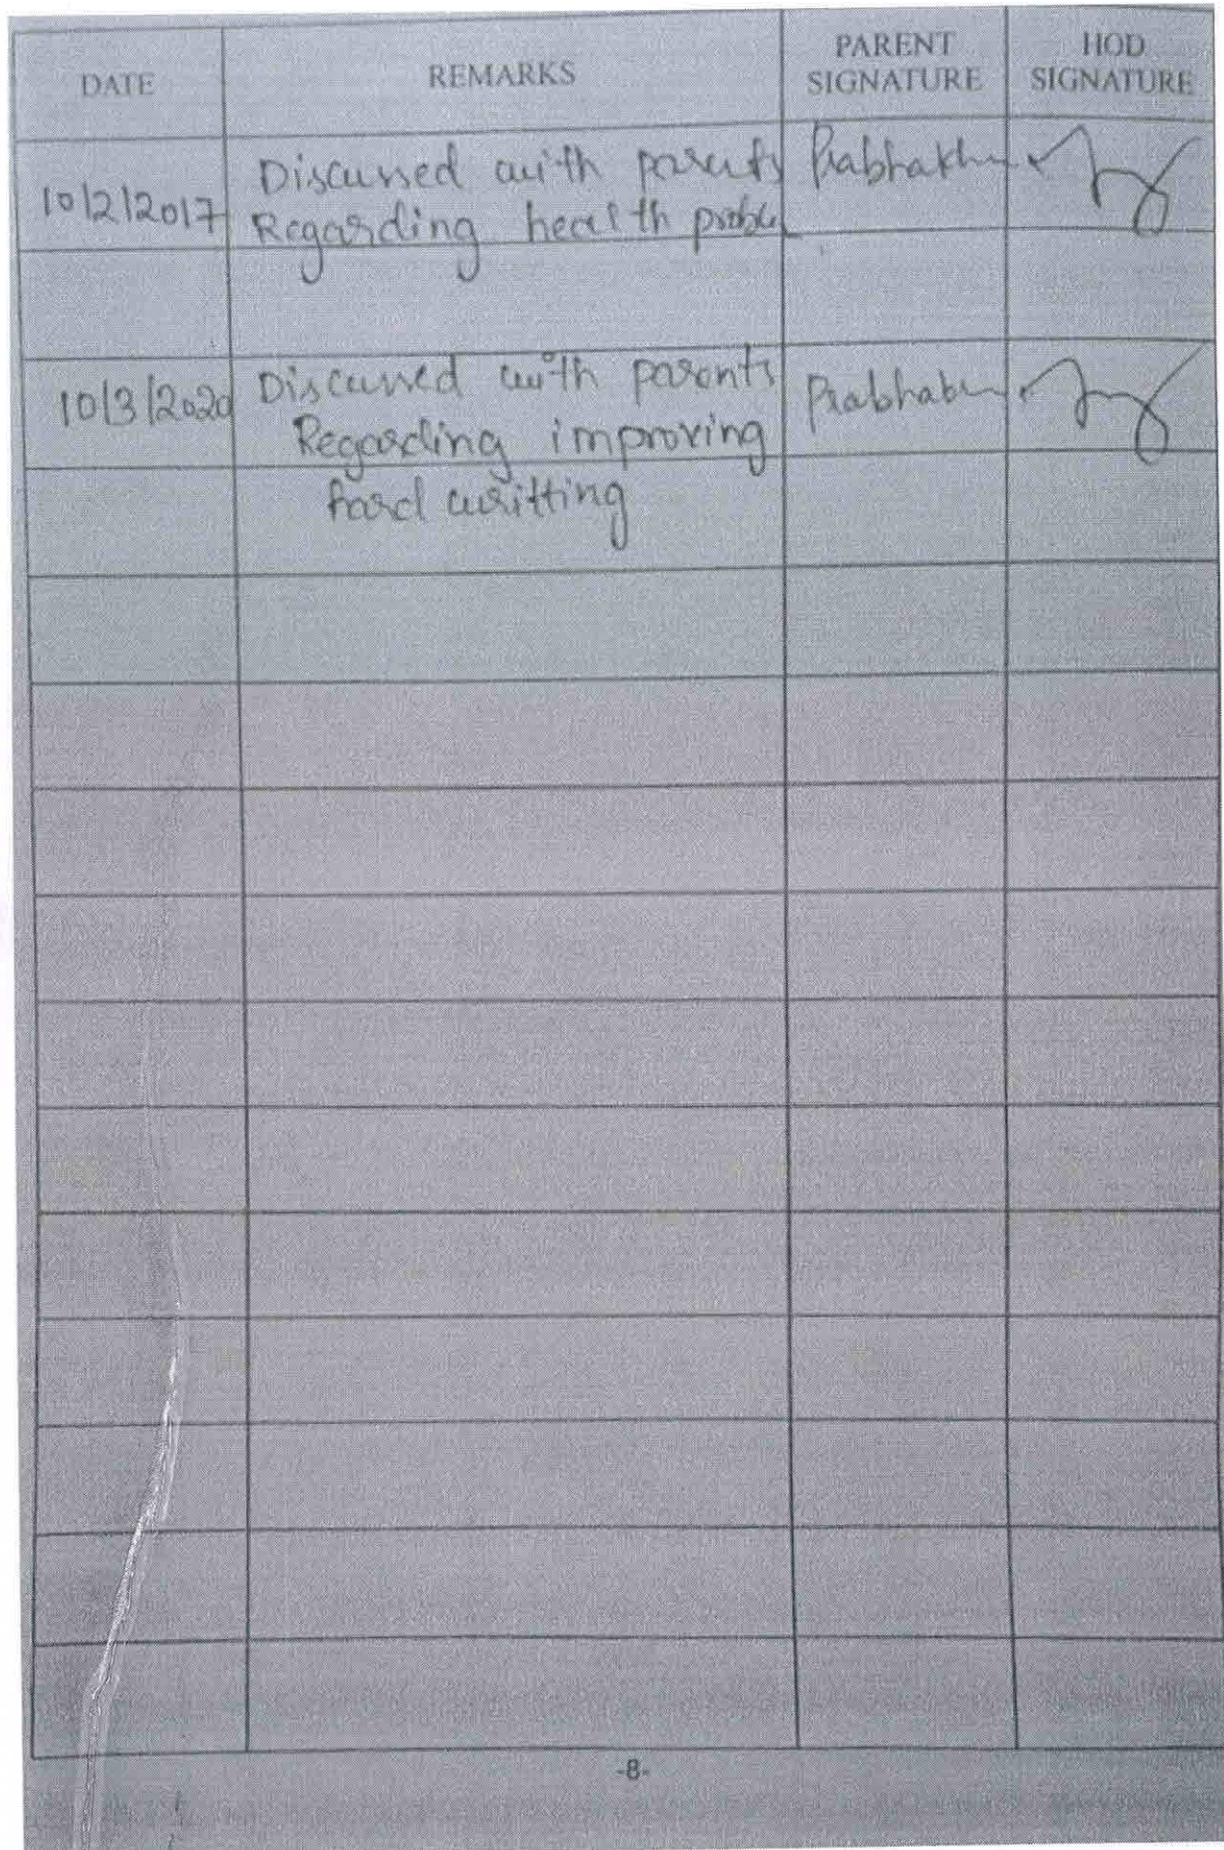 DATE REMARKS PARENT SIGNATURE HOD SIGNATURE
10/2/2017 Discussed with parents
Regarding health proble
10/3/2020 Discussed with parents
Regarding improving
hand writting
-8-